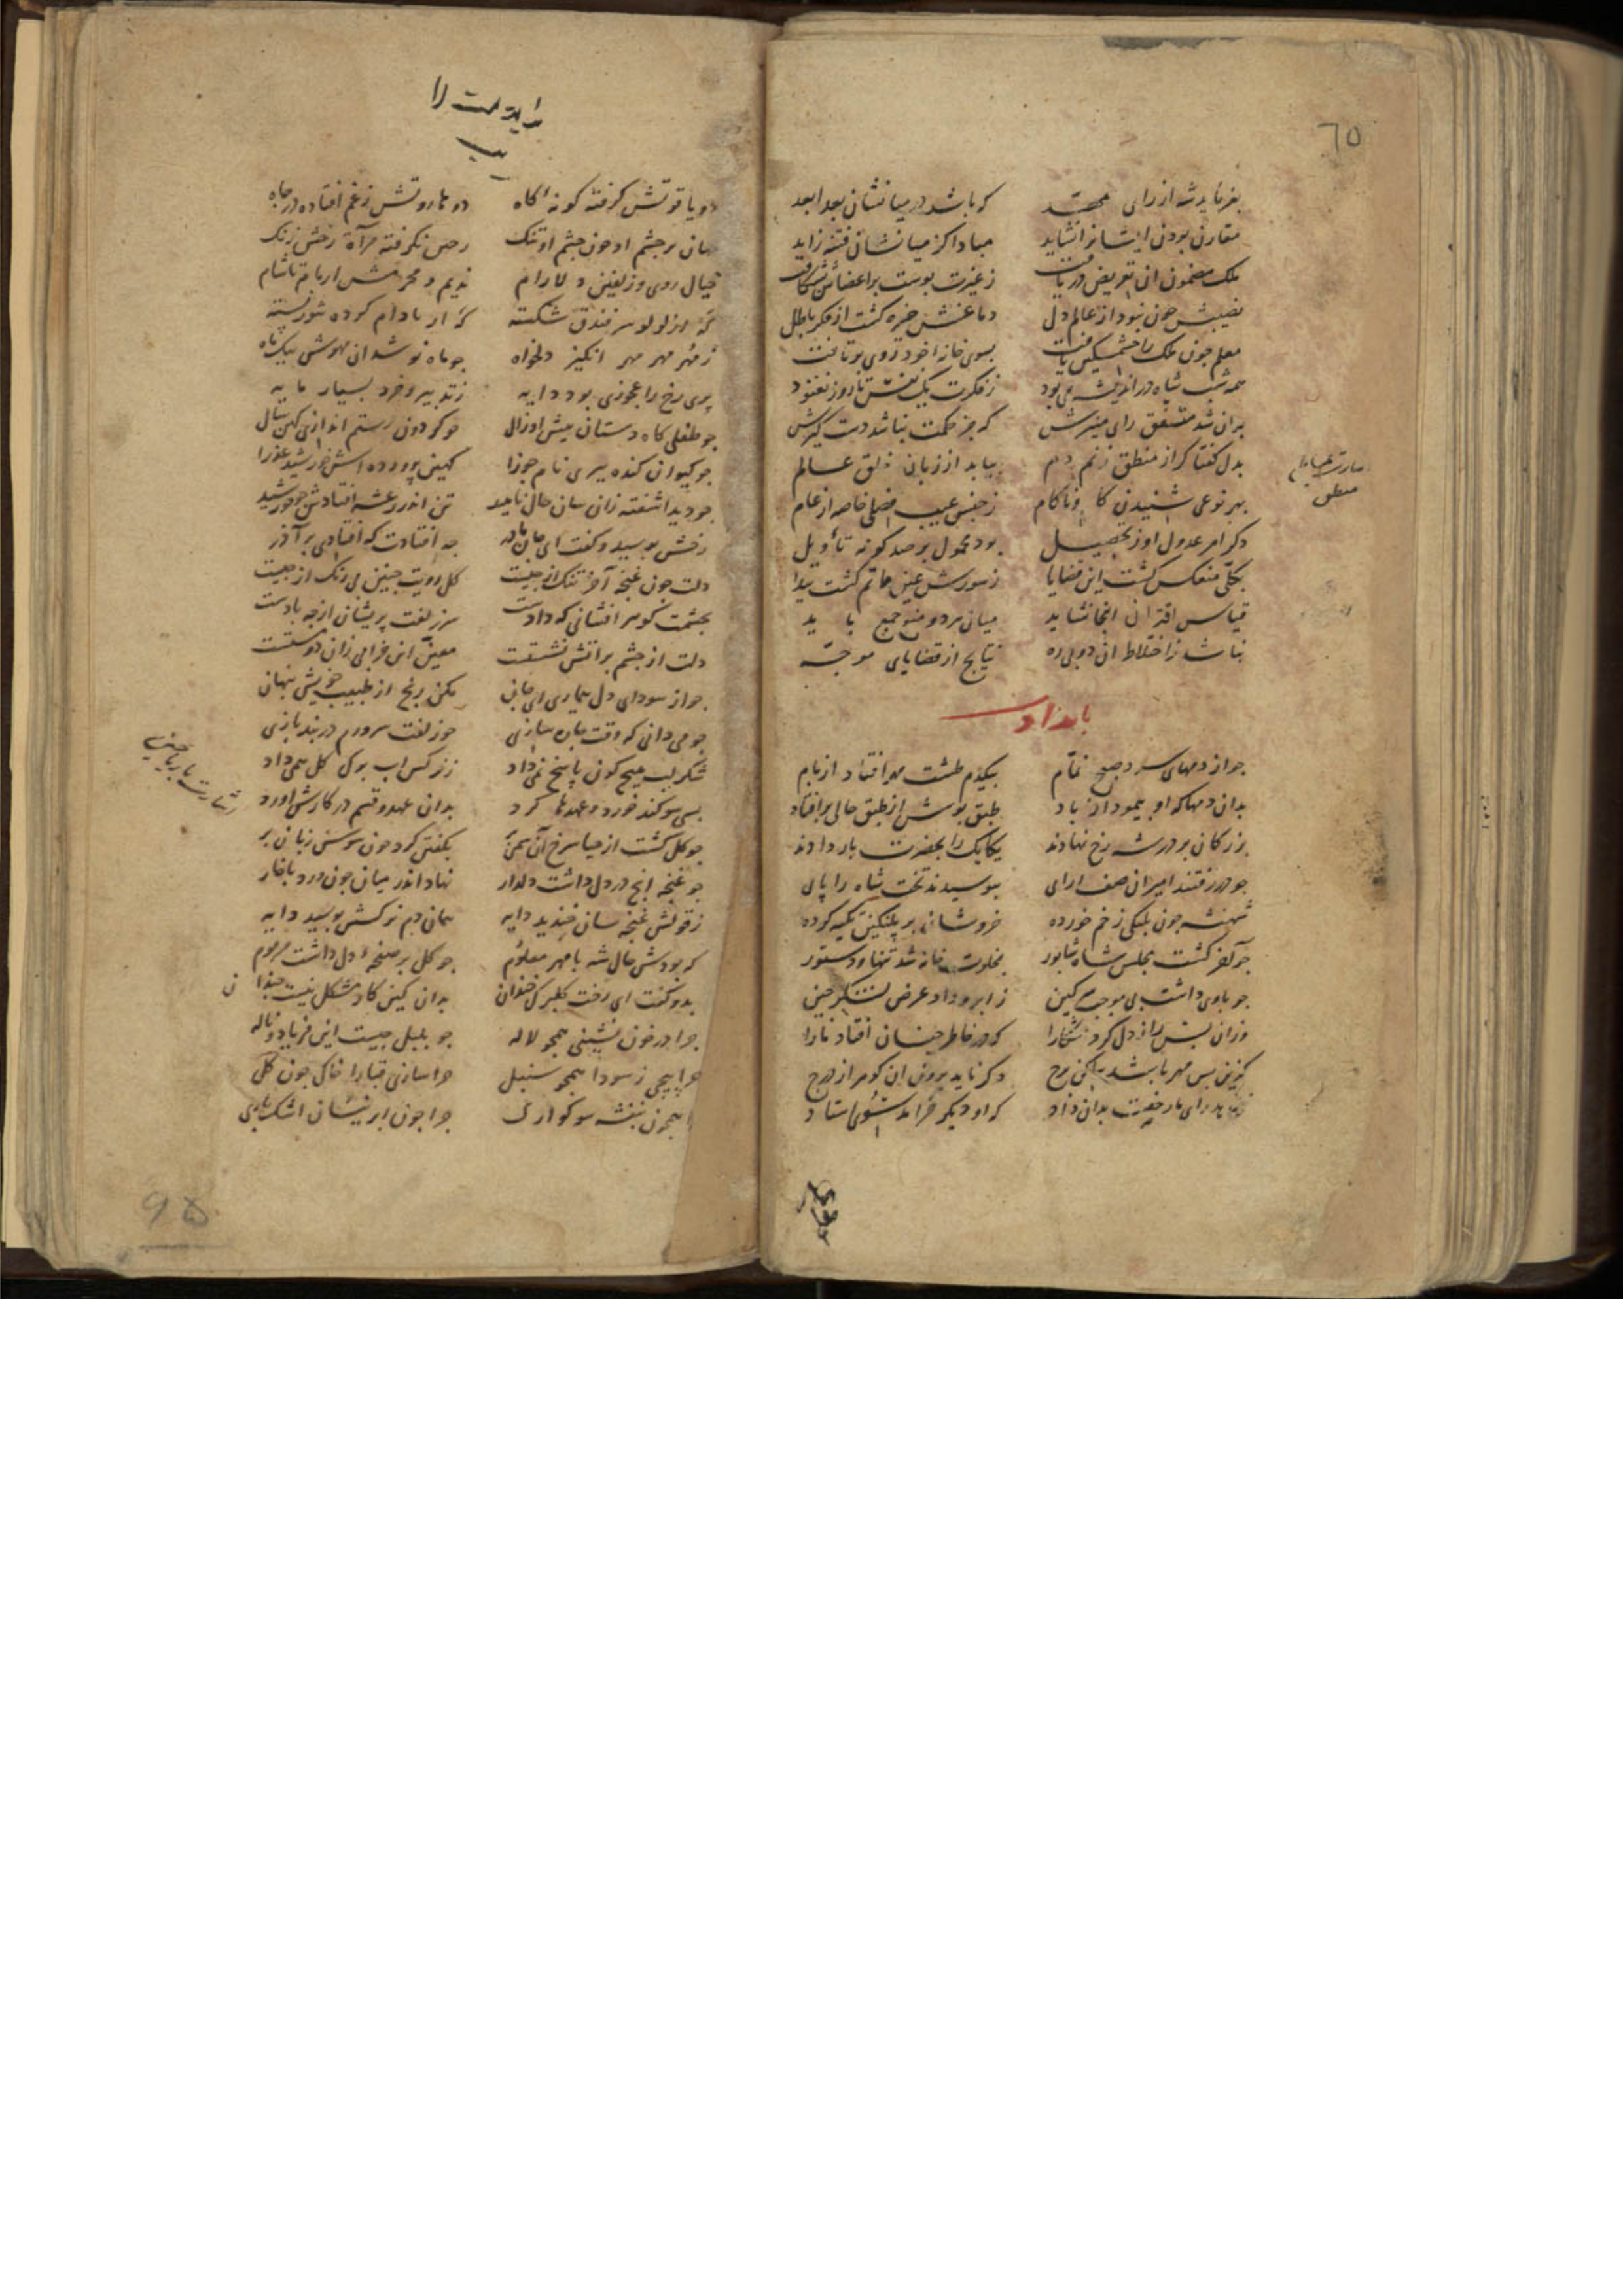 ٦٥
بفرماید شه از رای
که باشد در میانشان بعد ابعد
مقارن بودن ایشانرا نشاید
مبادا کز میانشان فتنه زاید
ملک مضمون ان تعریض دریافت
ز غیرت پوست بر اعضاش بشکافت
نصیبش چون نبود از عالم دل
دماغش خیره کشت از فکر باطل
معلم چون ملک را خشمکین یافت
بسوی خانهٔ خود روی برتافت
همه شب شاه در اندیشه می بود
ز فکرت یک نفس تا روز نغنود
بران شد متفق رای منیرش
که جز حکمت نباشد دست کیرش
بدل کفتا کر از منطق زنم دم
بیابد از زبان خلق عالم
بهر نوعی شنیدن کام و ناکام
ز جنس عیب فصلی خاصه از عام
دکر امر عدول اورز تحصیل
بود محمول بر صد کونه تاویل
بکلی منعکس کشت این قضایا
ز سورش عین ماتم کشت پیدا
قیاس اقترانی انجا نشاید
میان هر دو منع جمع باید
نباشد ز اختلاط ان دو بی ره
نتایج از قضایای موجه
منطق
بامداد
چو از دمهای سرد صبح نمام
بیکدم طشت مهر افتاد از بام
بدان دمها که او پیمود از باد
طبق پوش از طبق حالی برافتاد
بزرکان بر در شه رخ نهادند
یکایک را بحضرت بار دادند
چو در رفتند امیران صف ارای
ببوسیدند تخت شاه را پای
شهنشه چون پلنکی زخم خورده
خروشان بر پلنکینه تکیه کرده
چو اخر کشت مجلس شاه شاپور
بخلوت خانه شد تنها و دستور
چو باوی داشت بی موجب سر کین
ز ابرو داد عرض لشکر چین
وزان پس راز دل کرد اشکارا
که در خاطر چنان افتاد ما را
کزین پس مهر باشد ساکن برج
دکر ناید برون ان کوهر از درج
که او دیکر خرامد سوی استاد
دو یاقوتش کرفته کونهٔ کاه
دو هاروتش ز غم افتاده در چاه
جهان بر چشم او چون چشم او تنک
نکرفته مرآة رخش زنک
خیال روی و زلفین دلارام
ندیم و محرمش از بام تا شام
که از لولو سر فندق شکسته
که از بادام کرده شور پسته
ز مهر مهر مهر انکیز دلخواه
چو ماه نو شد ان مهوش بیک ماه
پری رخ را عجوزی بود دایه
ز تدبیر و خرد بسیار مایه
چو طفلی کاه دستان پیش او زال
چو کردون رستم اندازی کهن سال
چو کیوان کنده پیری نام جوزا
کهین پرورده اش خورشید عذرا
چو دید اشفته زان سان حال ناهید
تن اندر رعشه افتادش چو خورشید
رخش بوسید و کفت ای جان مادر
چه افتادت که افتادی بر آذر
دلت چون غنچه آخر تنک از چیست
کل رویت چنین بی رنک از چیست
بچشمت کوهر افشانی که دادست
سر زلفت پریشان از چه بادست
دلت از چشم بر اتش نشستست
معین این خرابی زان دو مستست
چو از سودای دل بیماری ای جان
مکن رنج از طبیب خویش پنهان
چو می دانی که وقت چاره سازی
چو زلفت سر ورم در بند بازی
شکر لب هیچ کون پاسخ نمی داد
ز نرکس اب بر کل همی داد
بسی سوکند خورد و عهدها کرد
بدان عهد و قسم در کارش اورد
چو کل کشت از حیا سرخ آن سمن بر
بکفتن کرد چون سوسن زبان بر
چو غنچه انچ در دل داشت دلدار
نهاد اندر میان چون ورد با خار
ز قولش غنچه سان خندید دایه
همان دم نرکسش بوسید دایه
که بودش حال شه با مهر معلوم
چو کل بر صفحهٔ دل داشت مرقوم
بدو کفت ای رخت کلبرک خندان
بدان کین کار مشکل نیست چندان
چرا در خون نشینی همچو لاله
چو بلبل چیست این فریاد و ناله
چرا پیچی ز سودا همچو سنبل
چرا سازی قبا را چاک چون کل
همچون بنفشه سوکواری
چرا چون ابر نیسان اشک باری
۹۵